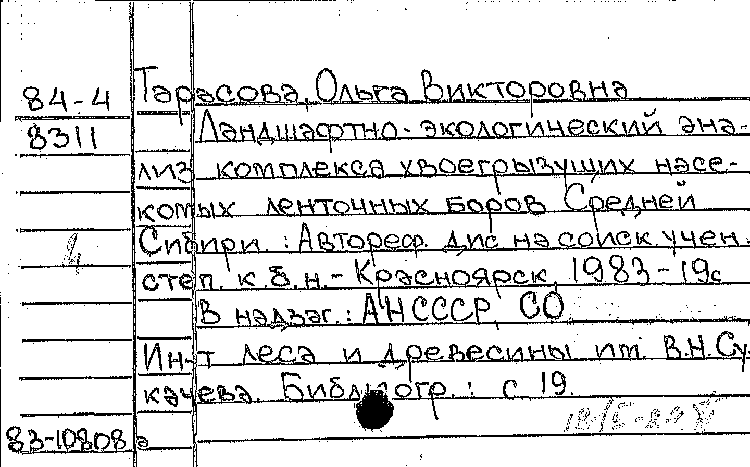 84-4 Тарасова, Ольга Викторовна
8311 Ландшафтно-экологический ана-
лиз комплекса хвоегрызущих насе-
комых ленточных боров Средней
Сибири.: Автореф. дис на соиск. учен.
степ. к.б.н.- Красноярск, 1983-19с
В надзаг.: АНСССР, СО
Ин-т леса и древесины им. В.Н.Су-
качева. Библиогр.: с 19.
83-10808а